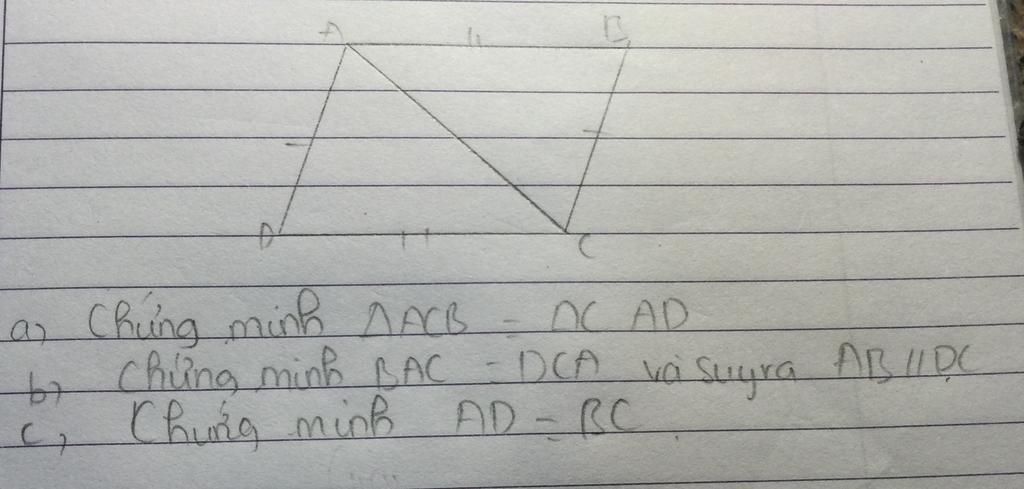 A B
D C
a, Chứng minh ΔACB = ΔC AD
b, Chứng minh BAC = DCA và suy ra AB // DC
c, Chứng minh AD = BC